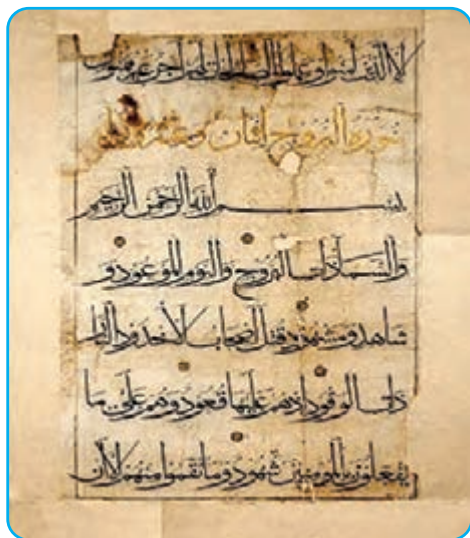 الا الذين امنوا وعملوا الصالحات لهم اجر غير ممنون
سورة البروج اثنان وعشرون
بسم الله الرحمن الرحيم
والسماء ذات البروج واليوم الموعود و
شاهد ومشهود قتل اصحاب الاخدود النار
ذات الوقود اذ هم عليها قعود وهم على ما
يفعلون بالمؤمنين شهود وما نقموا منهم الا ان